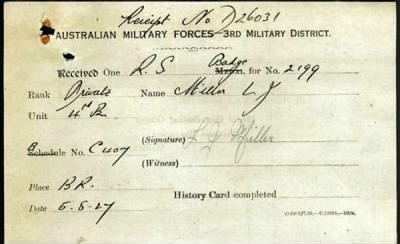 Receipt No D26031
AUSTRALIAN MILITARY FORCES 3RD MILITARY DISTRICT.
Received One R.S Badge Medal for No. 2199
Rank Private Name Miller L J
Unit 4th Bn.
(Signature) L J Miller
Schedule No.
(Witness)
Place B R.
History Card completed
Date 5-8-27